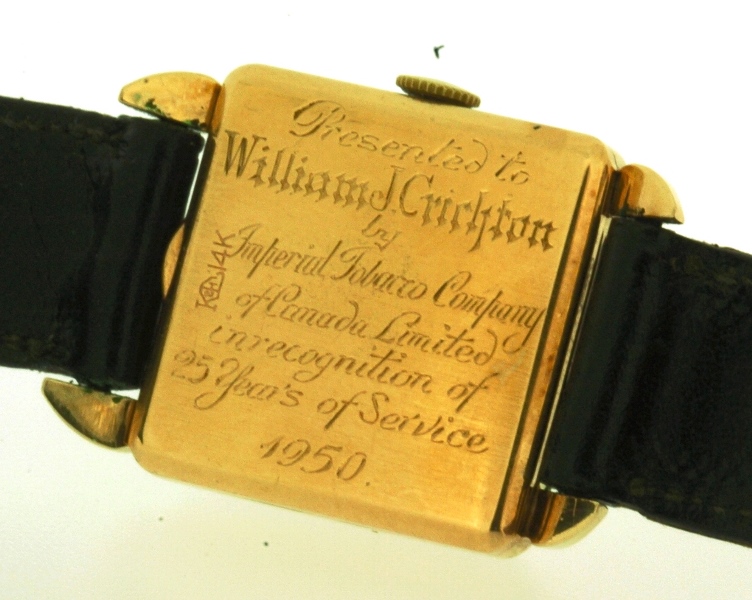 Presented to
William J. Crichton
by
Imperial Tobacco Company
of Canada Limited
in recognition of
25 Years of Service
1950.
14K